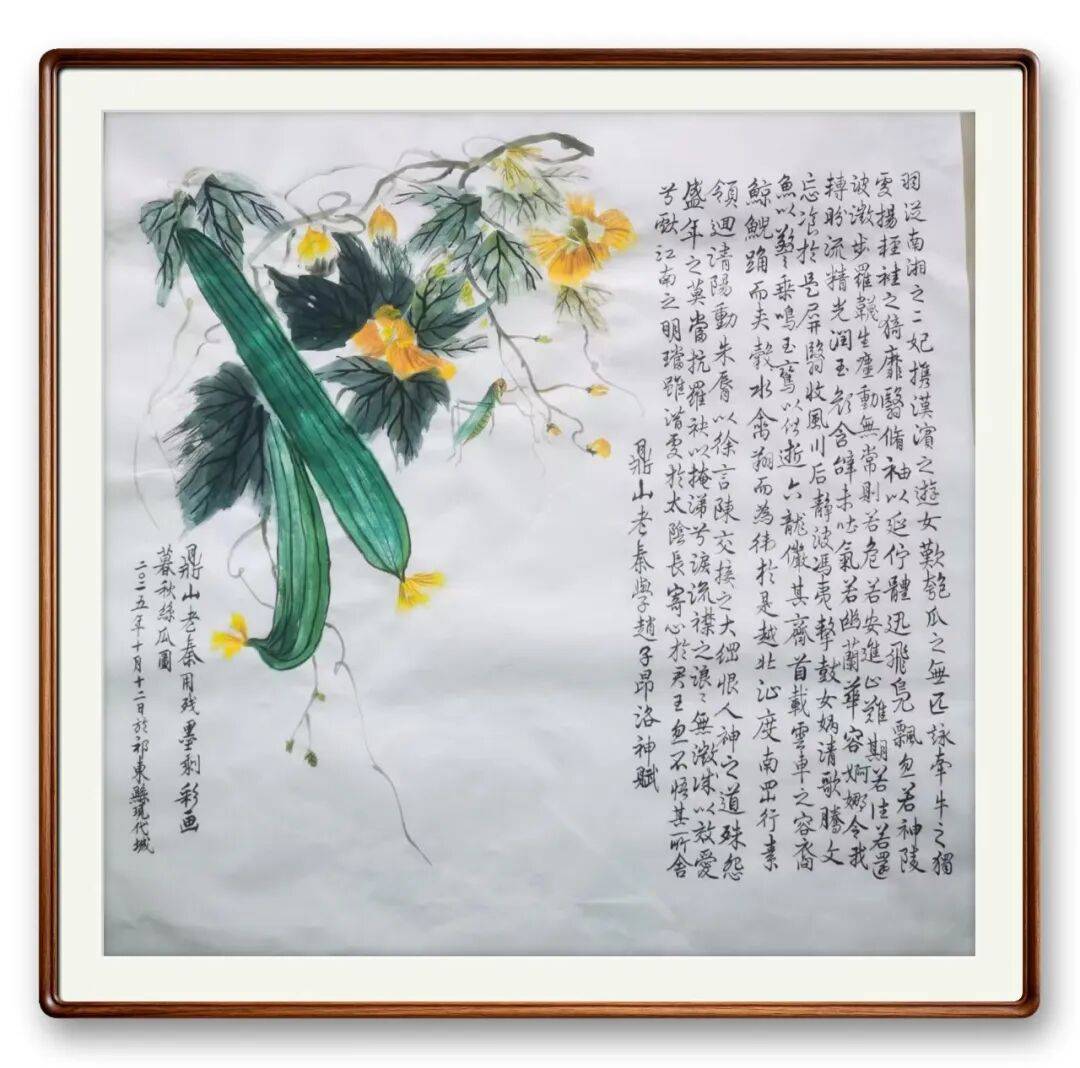 羽從南湘之二妃攜漢濱之遊女歎匏瓜之無匹詠牽牛之獨
處揚輕袿之猗靡翳脩袖以延佇體迅飛鳧飄忽若神陵
波微步羅韈生塵動無常則若危若安進止難期若往若還
轉盼流精光潤玉顏含辭未吐氣若幽蘭華容婀娜令我
忘飡於是屏翳收風川后静波馮夷擊鼓女媧清歌騰文
魚以警乘鳴玉鸞以偕逝六龍儼其齊首載雲車之容裔
鯨鯢踊而夹轂水禽翔而為衛於是越北沚度南岡行素
領迴清陽動朱脣以徐言陳交接之大綱恨人神之道殊怨
盛年之莫當抗羅袂以掩涕兮淚流襟之浪〻無微誠以效愛
兮獻江南之明璫雖潛處於太陰長寄心於君王忽不悟其所舍
鼎山老秦學趙子昂洛神賦
鼎山老秦用残墨剩彩画
暮秋絲瓜圖
二〇二五年十月十二日於祁東縣現代城